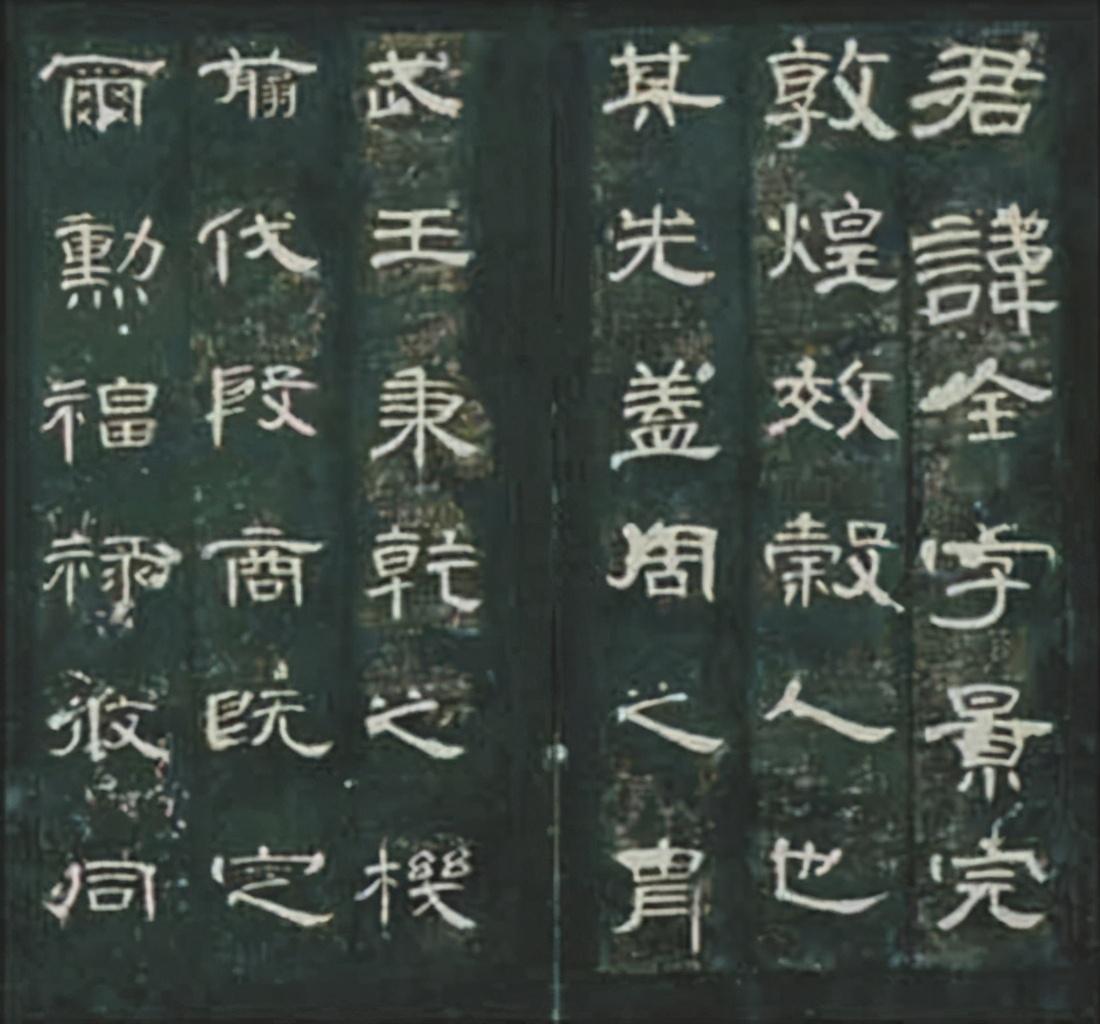 君諱全字景完
敦煌效穀人也
其先蓋周之胄
武王秉乾之機
翦伐殷商既定
爾勳福祿攸同